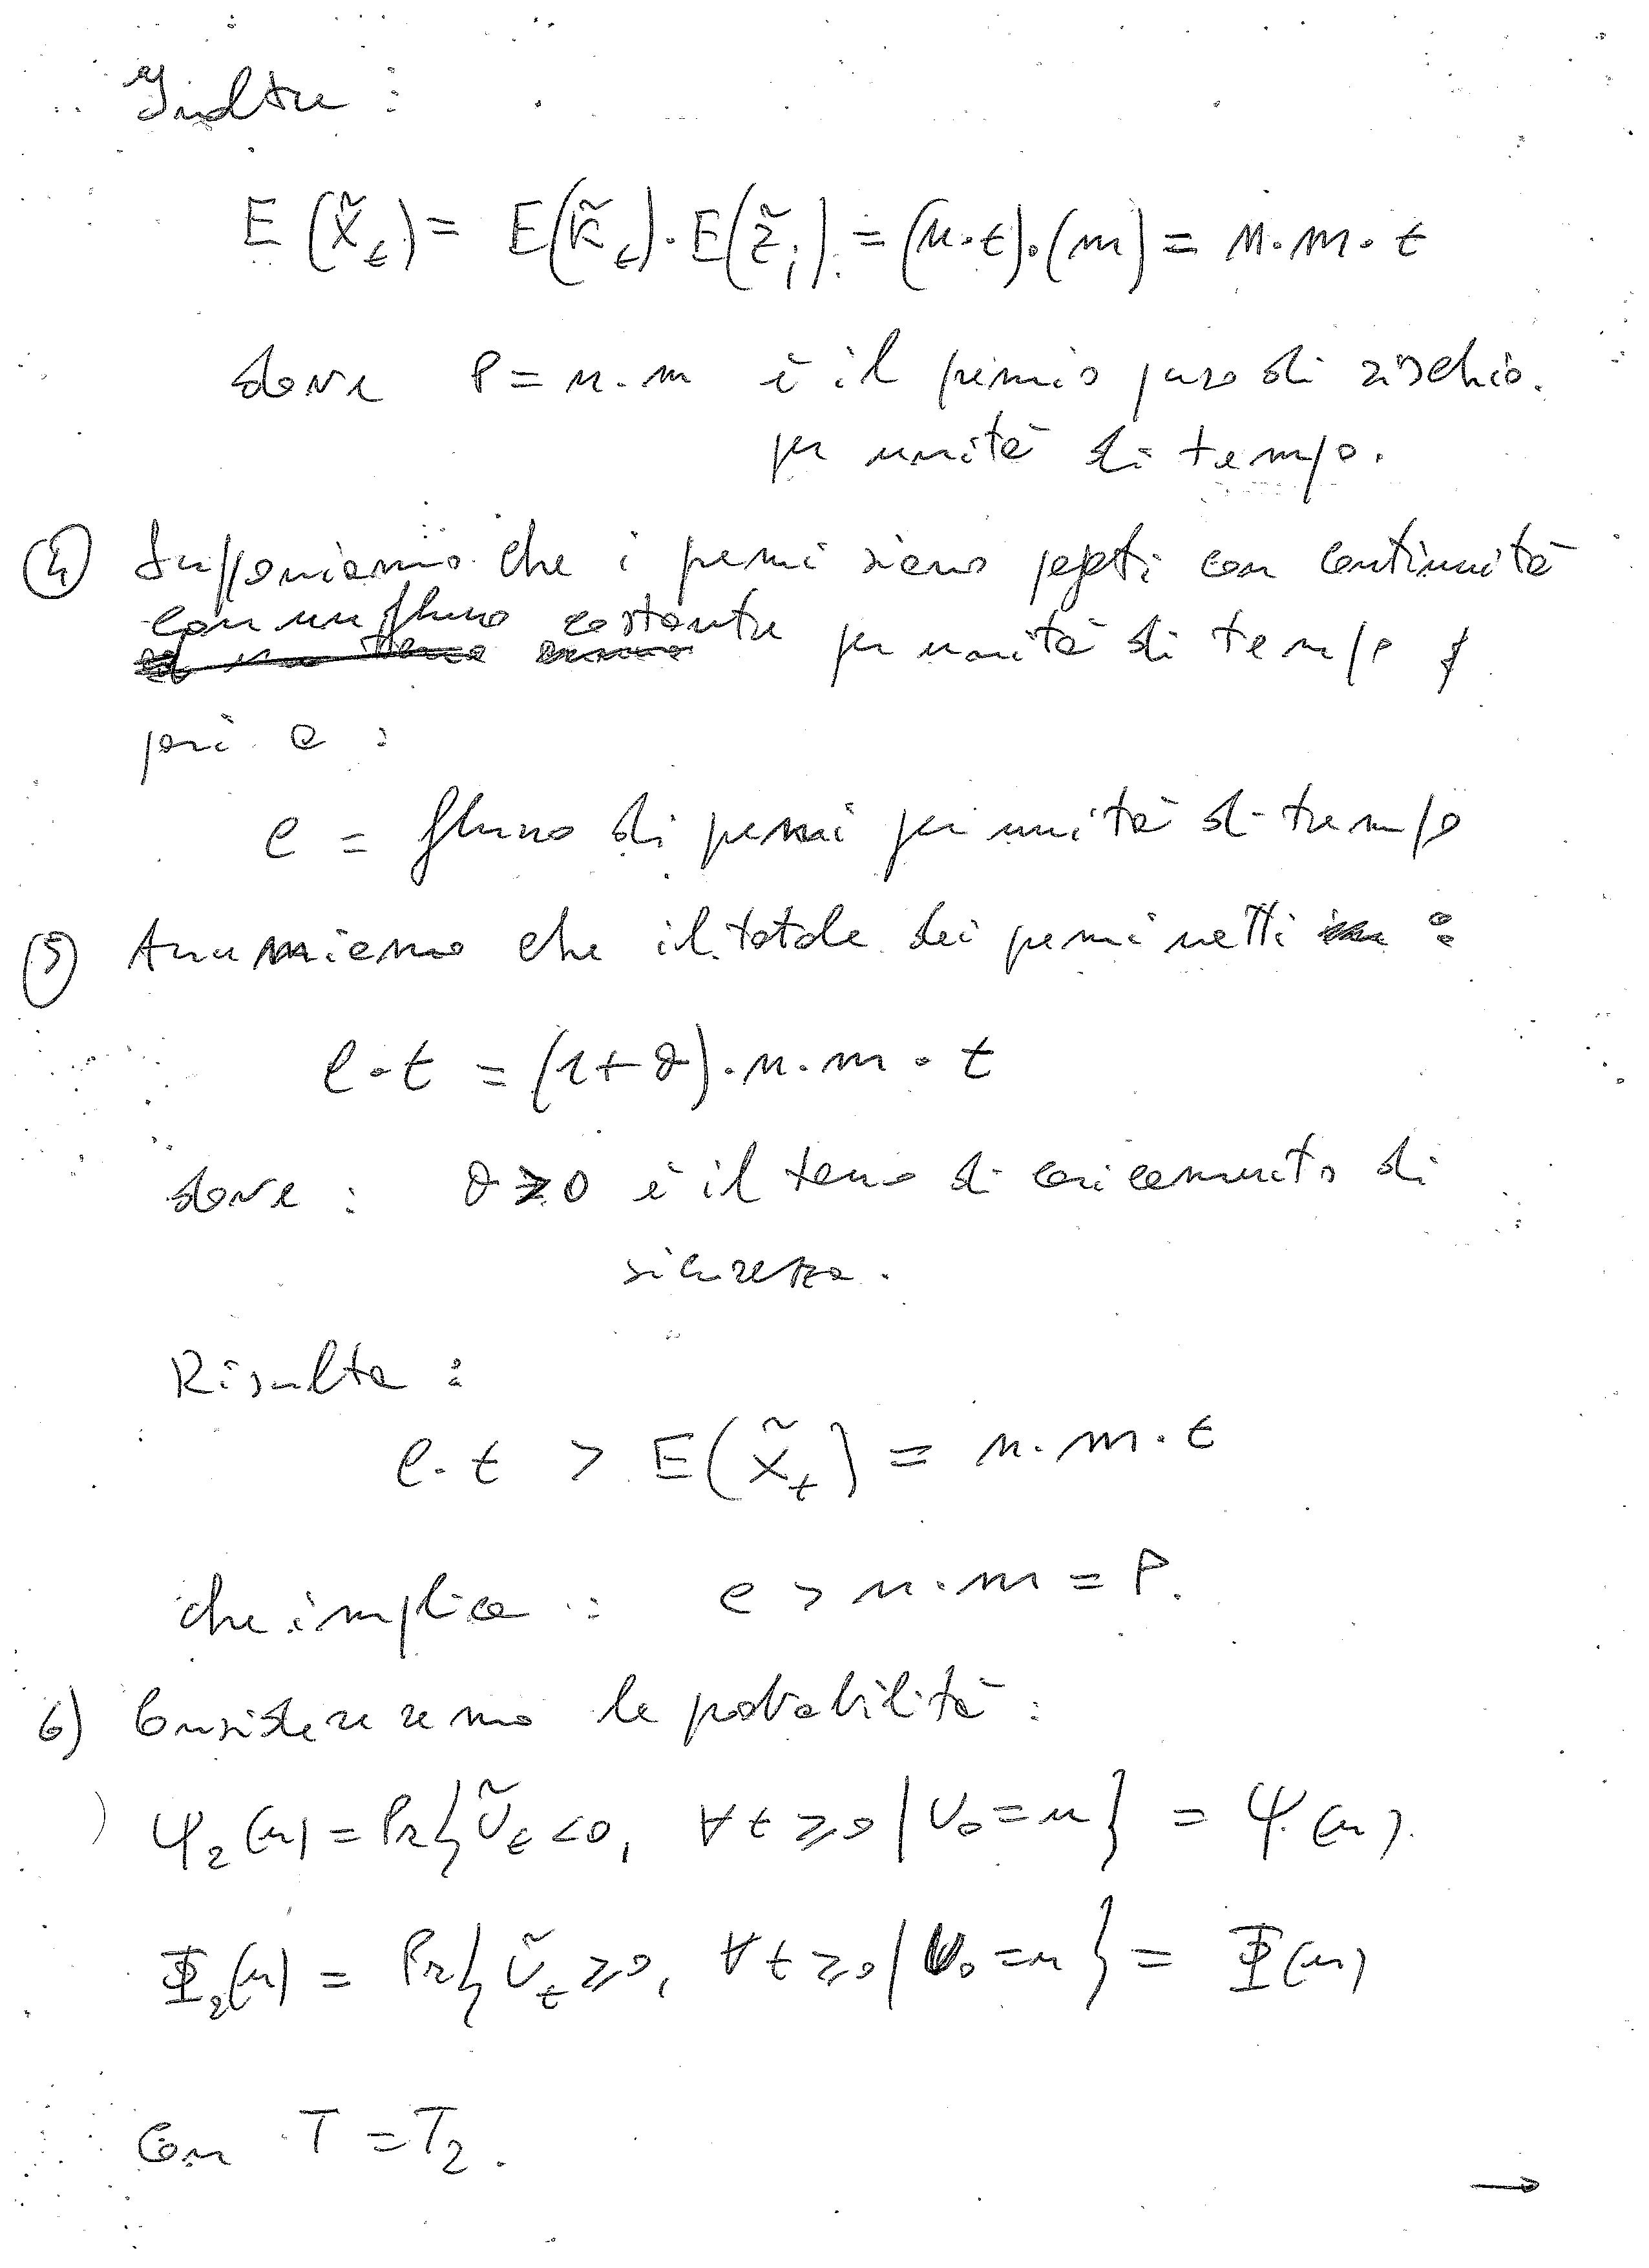 Inoltre :
E(X̃t) = E(K̃t)·E(Z̃i) = (n·t)·(m) = n·m·t
dove P = n·m è il premio puro di rischio.
per unità di tempo.
④ Supponiamo che i premi siano pagati con continuità
con un flusso costante per unità di tempo
pari a :
c = flusso di premi per unità di tempo
⑤ Assumiamo che il totale dei premi netti :
c·t = (1+θ)·n·m·t
dove : θ ≥ 0 è il tasso di caricamento di
sicurezza.
Risulta :
c·t > E(X̃t) = n·m·t
che implica : c > n·m = P.
6) Considereremo le probabilità :
Ψ2(u) = Pr{Ũt<0, ∀t≥0 | U0=u} = Ψ(u).
Φ2(u) = Pr{Ũt≥0, ∀t≥0 | U0=u} = Φ(u)
Con T = T2.
→